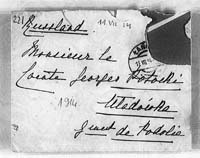 221
Russland.
11.VII.14
Monsieur le
Comte Georges Potocki
1914
Wladowka
Gouvt de Podolie